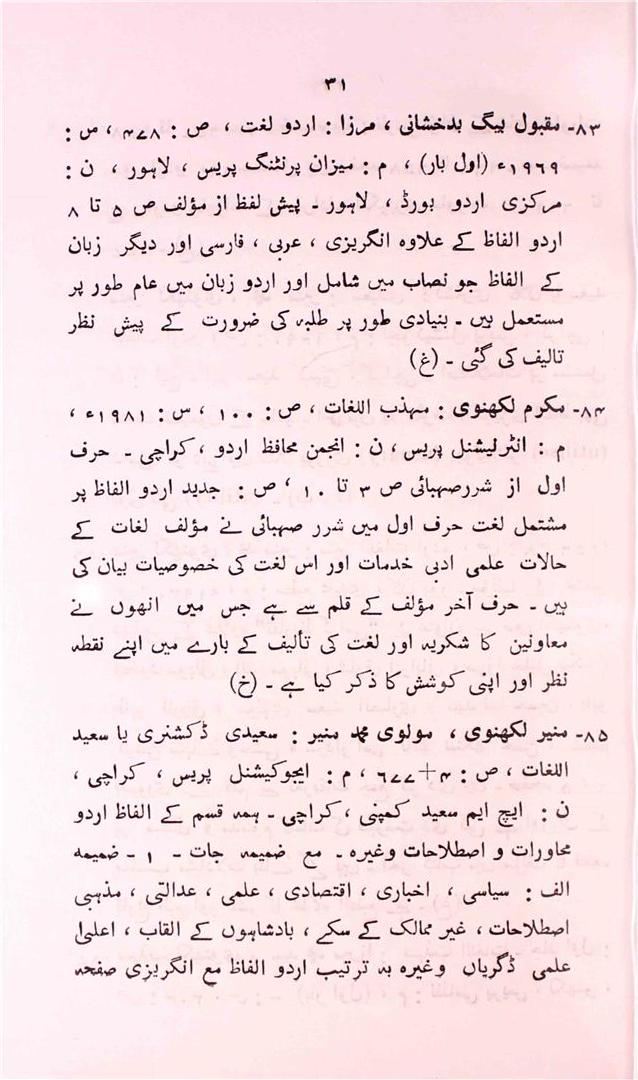 ۳۱
۸۳- مقبول بیگ بدخشانی ، مرزا : اردو لغت ، ص : ۴۷۸ ، س :
۱۹۶۹ء (اول بار) ، م : میزان پرنٹنگ پریس ، لاہور ، ن :
مرکزی اردو بورڈ ، لاہور - پیش لفظ از مؤلف ص ۵ تا ۸
اردو الفاظ کے علاوہ انگریزی ، عربی ، فارسی اور دیگر زبان
کے الفاظ جو نصاب میں شامل اور اردو زبان میں عام طور پر
مستعمل ہیں - بنیادی طور پر طلبہ کی ضرورت کے پیش نظر
تالیف کی گئی - (غ)
۸۴- مکرم لکھنوی : مہذب اللغات ، ص : ۱۰۰ ، س : ۱۹۸۱ء ،
م : انٹرنیشنل پریس ، ن : انجمن محافظ اردو ، کراچی - حرف
اول از شررصہبائی ص ۳ تا ۱۰ ، ص : جدید اردو الفاظ پر
مشتمل لغت حرف اول میں شرر صہبائی نے مؤلف لغات کے
حالات علمی ادبی خدمات اور اس لغت کی خصوصیات بیان کی
ہیں - حرف آخر مؤلف کے قلم سے ہے جس میں انھوں نے
معاونین کا شکریہ اور لغت کی تألیف کے بارے میں اپنے نقطہ
نظر اور اپنی کوشش کا ذکر کیا ہے - (خ)
۸۵- منیر لکھنوی ، مولوی محمد منیر : سعیدی ڈکشنری یا سعید
اللغات ، ص : ۴+۶۷۷ ، م : ایجوکیشنل پریس ، کراچی ،
ن : ایچ ایم سعید کمپنی ، کراچی - ہمہ قسم کے الفاظ اردو
محاورات و اصطلاحات وغیرہ - مع ضمیمہ جات - ۱ - ضمیمہ
الف : سیاسی ، اخباری ، اقتصادی ، علمی ، عدالتی ، مذہبی
اصطلاحات ، غیر ممالک کے سکے ، بادشاہوں کے القاب ، اعلیٰ
علمی ڈگریاں وغیرہ بہ ترتیب اردو الفاظ مع انگریزی صفحہ